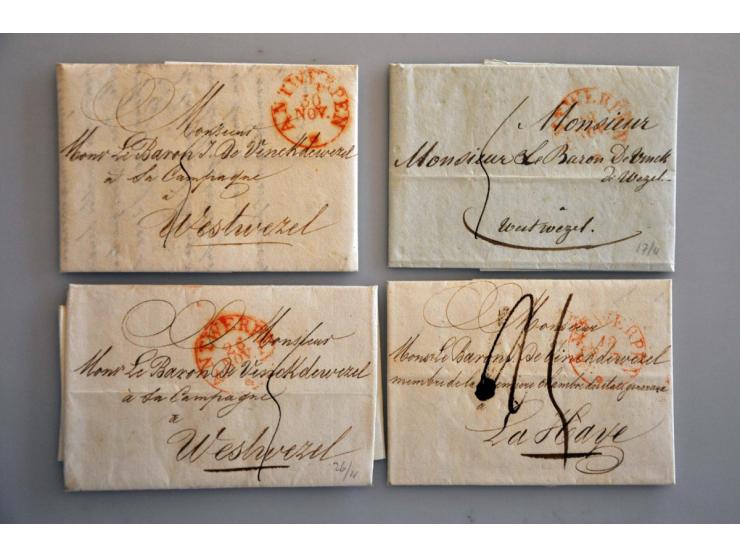 ANTWERPEN
30
NOV.
Monsieur
Monsr Le Baron J. De Vinckdewezel
à Sa Campagne
à
Westwezel
5
ANTWERPEN
Monsieur
Monsieur Le Baron De Vinck
de Wezel
à
Westwezel.
5
17/11
ANTWERPEN
Monsieur
Monsr Le Baron De Vinckdewezel
à Sa Campagne
à
Westwezel
5
26/11
ANTWERPEN
19
Monsieur
Monsr Le Baron De Vinckdewezel
membre de la chambre des états généraux
à
La Haye